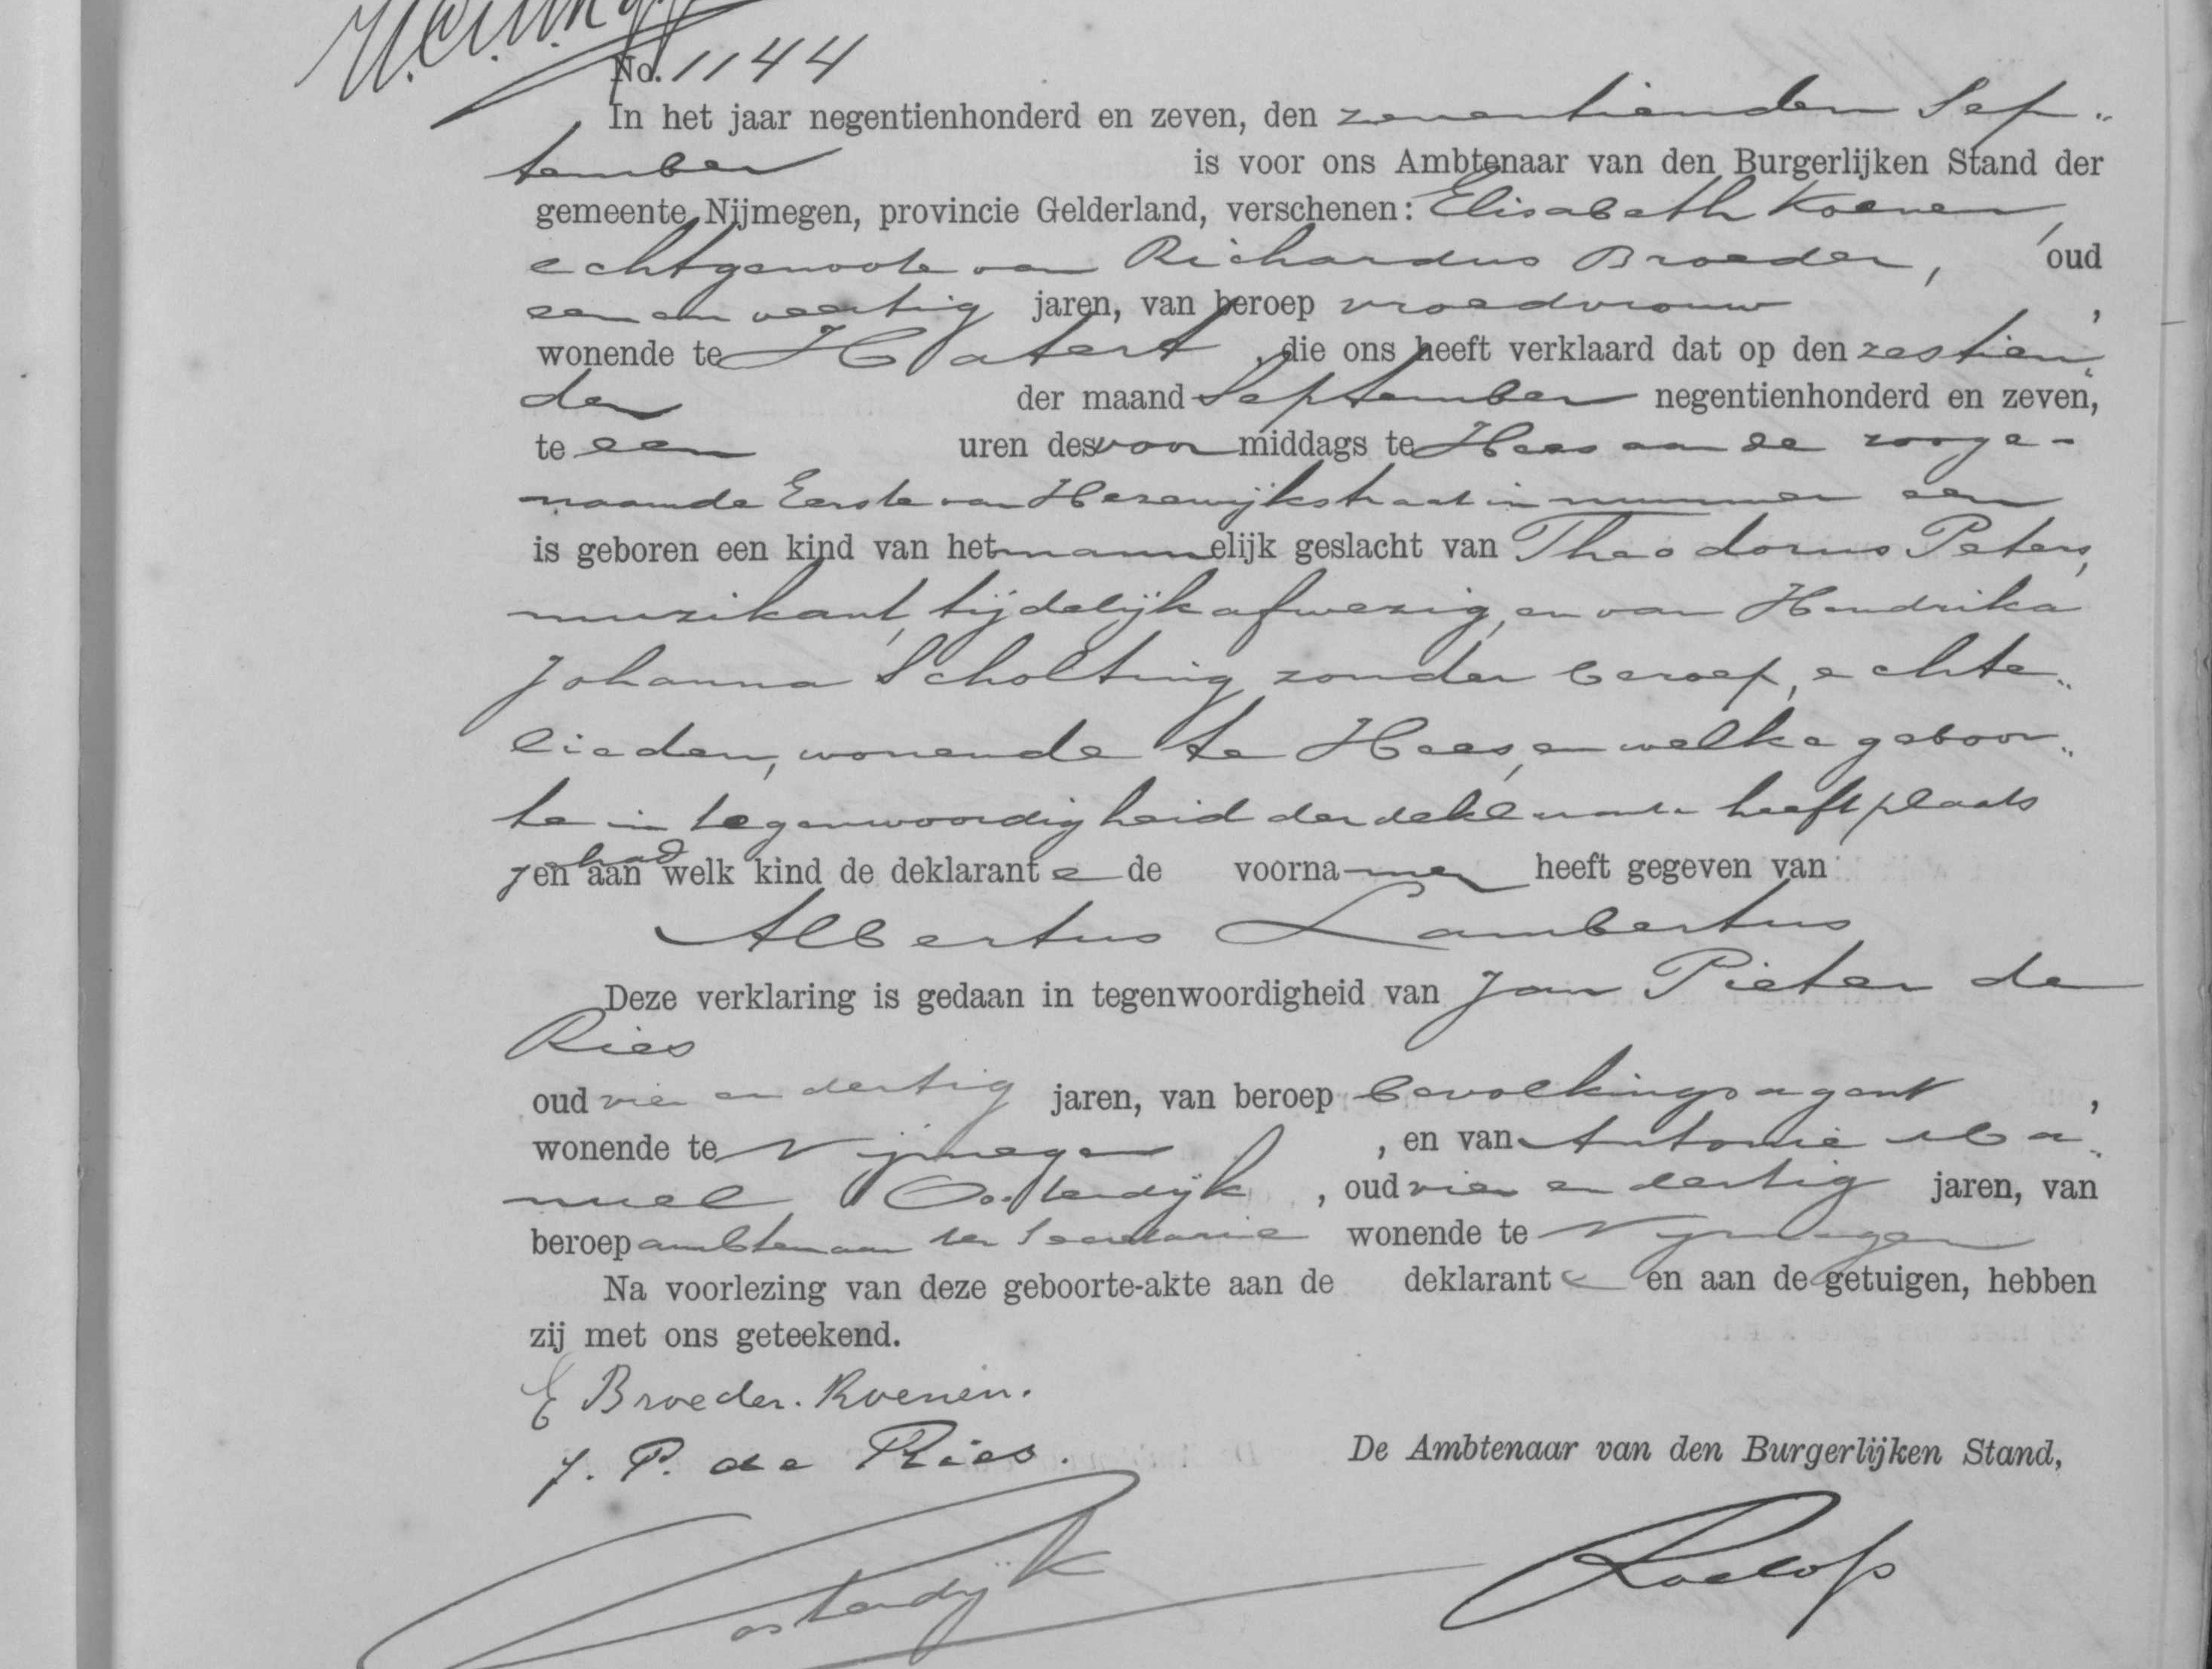 No. 1144
In het jaar negentienhonderd en zeven, den zeventienden Sep„
tember is voor ons Ambtenaar van den Burgerlijken Stand der
gemeente Nijmegen, provincie Gelderland, verschenen: Elisabeth Koenen,
echtgenoote van Richardus Broeder, oud
een en veertig jaren, van beroep vroedvrouw,
wonende te Hatert, die ons heeft verklaard dat op den zestien„
den der maand September negentienhonderd en zeven,
te een uren des voor middags te Hees aan de zooge-
naamde Eerste van Hezewijkstraat in nummer een
is geboren een kind van het mannelijk geslacht van Theodorus Peters,
muzikant, tijdelijk afwezig, en van Hendrika
Johanna Scholting, zonder beroep, echte„
lieden, wonende te Hees, en welke geboor„
te in tegenwoordigheid der deklarante heeft plaats
gehad
en aan welk kind de deklarante de voornamen heeft gegeven van
Albertus Lambertus
Deze verklaring is gedaan in tegenwoordigheid van Jan Pieter de
Ries
oud vier en dertig jaren, van beroep bevolkingsagent,
wonende te Nijmegen, en van Antonie
Oosterdijk, oud vier en dertig jaren, van
beroep ambtenaar ter Secretarie wonende te Nijmegen
Na voorlezing van deze geboorte-akte aan de deklarante en aan de getuigen, hebben
zij met ons geteekend.
E Broeder. Koenen.
J. P. de Ries.
De Ambtenaar van den Burgerlijken Stand,
Oosterdijk